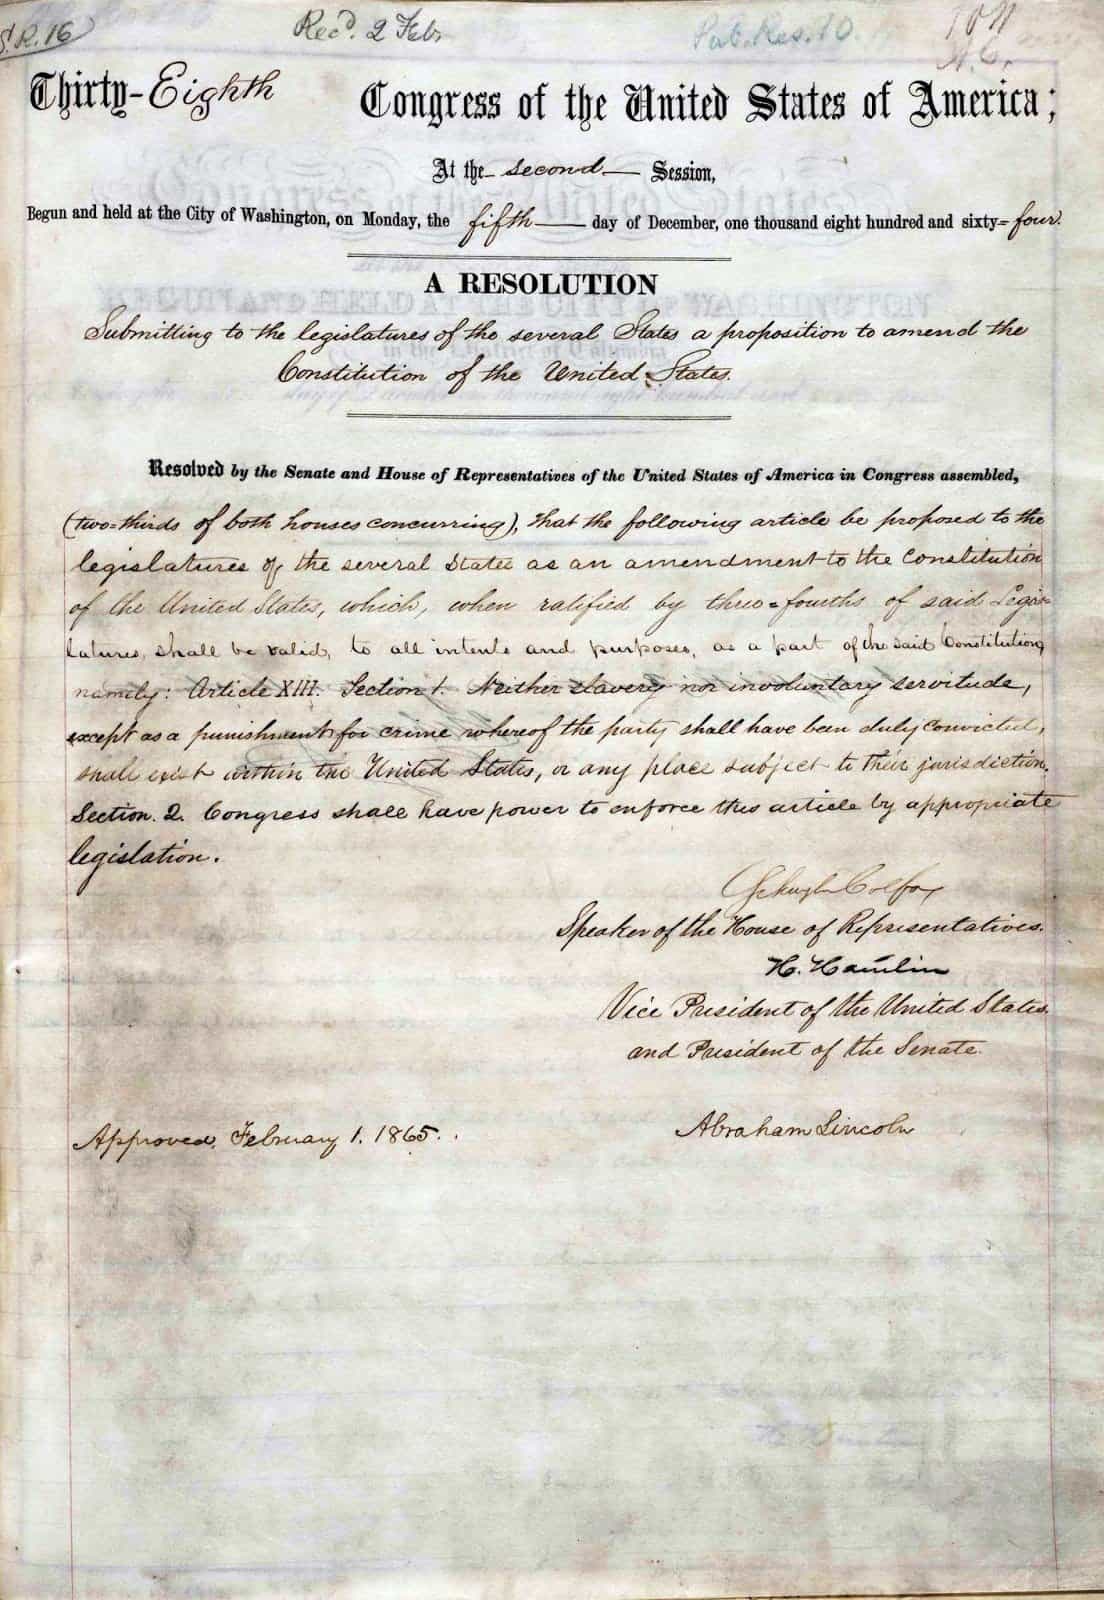 S.R. 16
Rec'd. 2 Feb.
Pub. Res. 10.
Thirty-Eighth Congress of the United States of America;
At the second Session,
Begun and held at the City of Washington, on Monday, the fifth day of December, one thousand eight hundred and sixty-four.
A RESOLUTION
Submitting to the legislatures of the several States a proposition to amend the
Constitution of the United States.
Resolved by the Senate and House of Representatives of the United States of America in Congress assembled,
(two-thirds of both houses concurring), that the following article be proposed to the
legislatures of the several States as an amendment to the Constitution
of the United States, which, when ratified by three-fourths of said Legis-
latures, shall be valid, to all intents and purposes, as a part of the said Constitution,
namely: Article XIII. Section 1. Neither slavery nor involuntary servitude,
except as a punishment for crime whereof the party shall have been duly convicted,
shall exist within the United States, or any place subject to their jurisdiction.
Section. 2. Congress shall have power to enforce this article by appropriate
legislation.
Schuyler Colfax
Speaker of the House of Representatives.
H. Hamlin
Vice President of the United States,
and President of the Senate.
Approved, February 1. 1865.
Abraham Lincoln